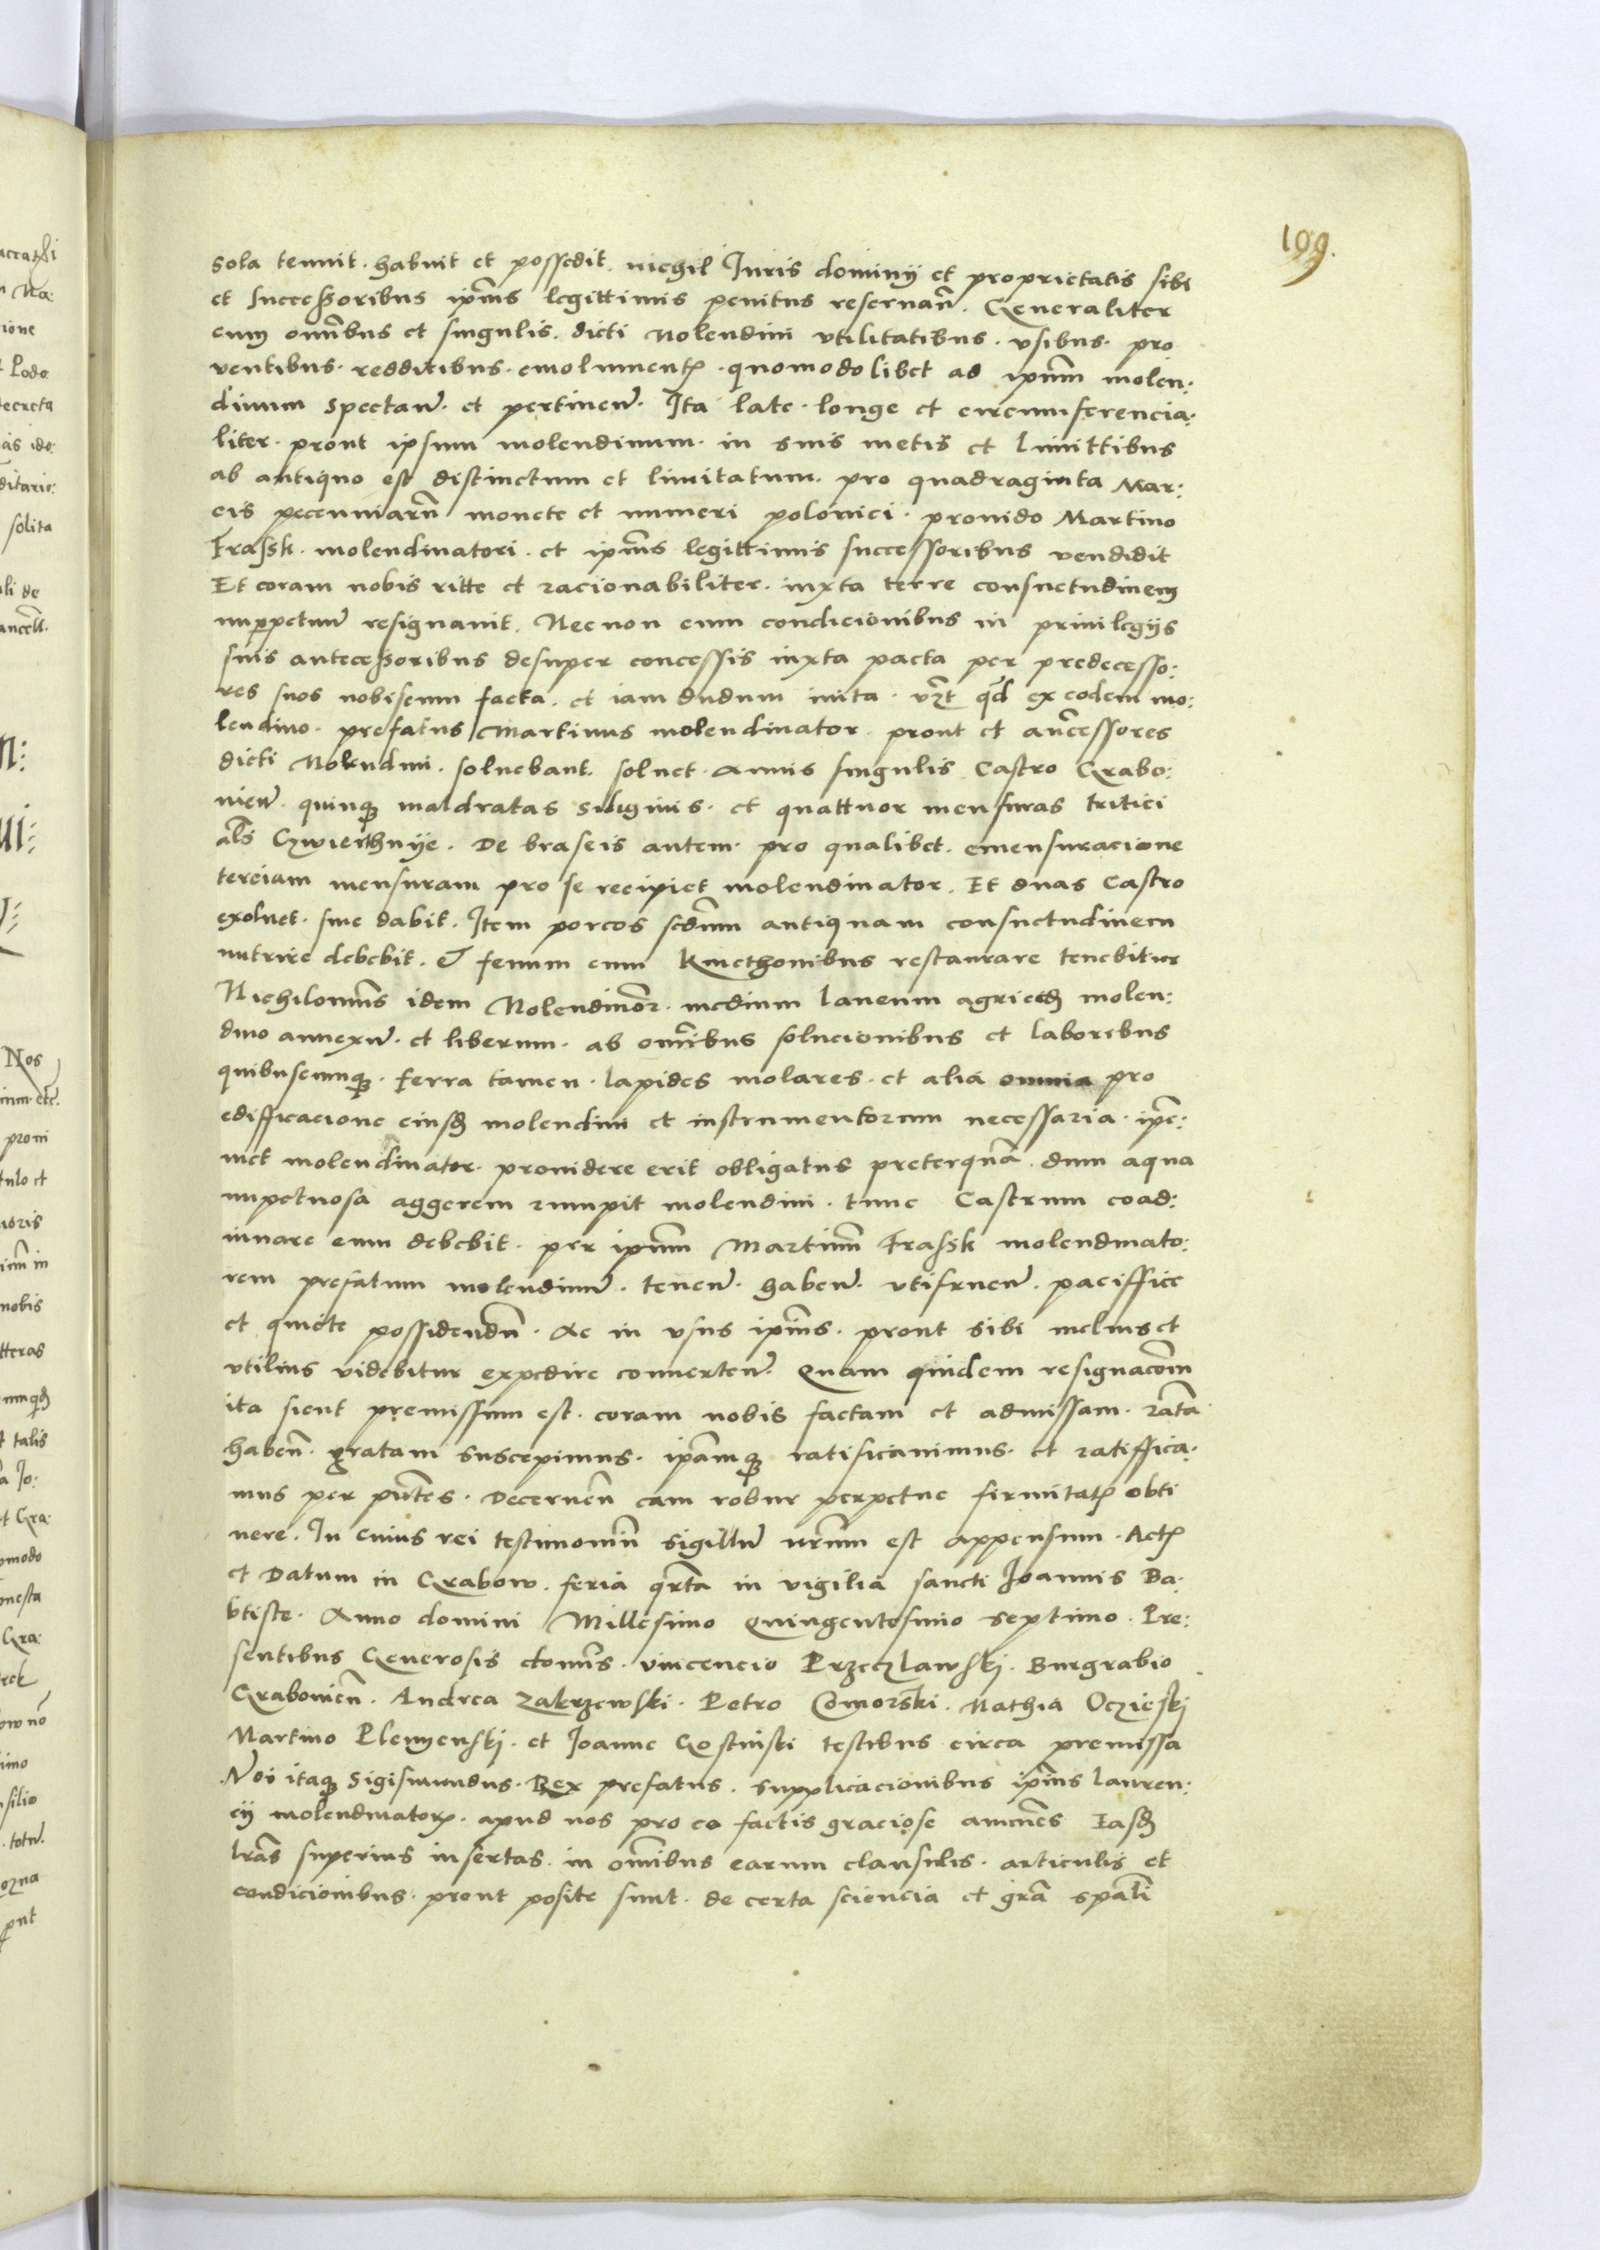 199.
sola tenuit. habuit et possedit. nichil Juris dominij et proprietatis sibi
et successoribus ipīus legittimis penitus reseruan̄. Generaliter
cum om̄ibus et singulis. dicti Molendini vtilitatibus. vsibus. pro
uentibus. redditibus. emolument. quomodolibet ad ipm̄ molen:
dinum spectan̄. et pertinen̄. Ita late. longe et circumferencia:
liter. prout ipsum molendinum. in suis metis et limittibus
ab antiquo est distinctum et limitatum. pro quadraginta Mar:
cis pecuniarū monete et numeri polonici. prouido Martino
Frassk. molendinatori. et ipīus legittimis successoribus vendidit
Et coram nobis ritte et racionabiliter. iuxta terre consuetudinem
inp̱petuū resignauit. Necnon cum condicionibus in priuilegijs
suis antecessoribus desuper concessis iuxta pacta per predecesso:
res suos nobiscum facta. et iam dudum inita. vz̄t qd̄ ex eodem mo:
lendino. prefatus Martinus molendinator. prout et an̄cessores
dicti Molendini. soluebant. soluet. Annis singulis Castro Grabo:
nien̄. quinqȝ maldratas siliginis. et quattuor mensuras tritici
al̄s Czwierthnÿe. De braseis autem. pro qualibet. emensuracione
terciam mensuram pro se recipiet molendinator. Et duas Castro
exoluet. siue dabit. Item porcos scd̄um antiquam consuetudinem
nutrire debebit. & fenum cum kmethonibus restaurare tenebitur
Nichilomīus idem Molendinōr. medium laneum agri eiȝ molen:
dino annexū. et liberum. ab om̄ibus solucionibus et laboribus
quibuscumqȝ. ferra tamen. lapides molares. et alia omnia pro
edifficacione eiusȝ molendini et instrumentorum necessaria. ip̄e:
met molendinator. prouidere erit obligatus preterquā. dum aqua
inpetuosa aggerem rumpit molendini. tunc Castrum coad:
iuuare eum debebit. per ipm̄ Martinū Frassk molendinato:
rem prefatum molendinū. tenen̄. haben̄. vtifruen̄. paciffice
et quiete possidendū. Ac in vsus ipīus. prout sibi melius et
vtilius videbitur expedire conuerten̄. Quam quidem resignacōm
ita sicut premissum est. coram nobis factam et admissam. ratā
haben̄. gratam suscepimus. ipamqȝ ratificauimus. et ratiffica:
mus per pn̄tes. Decernen̄ eam robur perpetue firmitat obti
nere. In cuius rei testimoniū sigillū nrm̄ est appensum. Act
et Datum in Grabow. feria qr̄ta in vigilia sancti Joannis Ba.
btiste. Anno domini Millesimo Quingentosimo septimo. Pre:
sentibus Generosis dom̄is. vincencio Przeczlawskj. Burgrabio
Grabonien̄. Andrea Zakrzewski. Petro Comorski. Mathia Oczieskj
Martino Plemyenskj. et Joanne Gostinski testibus circa premissa
Nos itaqȝ Sigismundus. Rex prefatus. supplicacionibus ipīus lauren:
cij molendinator. apud nos pro eo factis graciose annuen̄tes Easȝ
lrās superius insertas. in om̄ibus earum clausulis. articulis et
condicionibus. prout posite sunt. de certa sciencia et grā sp̄ali